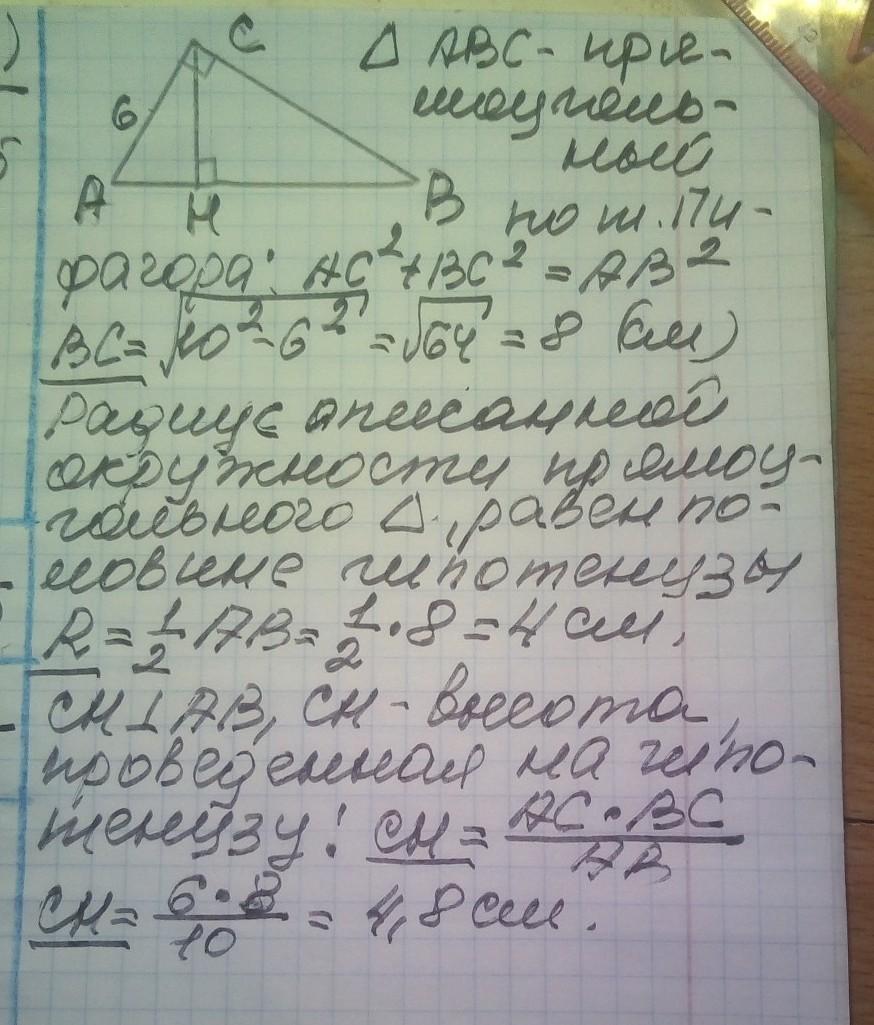 C
6
A H B
△ ABC - пря-
моуголь-
ный
по т. Пи-
фагора: AC² + BC² = AB²
BC = √10² - 6² = √64 = 8 (см)
Радиус описанной
окружности прямоу-
гольного △, равен по-
ловине гипотенузы
R = 1/2 AB = 1/2 · 8 = 4 см.
CH ⊥ AB, CH - высота,
проведенная на гипо-
тенузу! CH = AC · BC / AB
CH = 6 · 8 / 10 = 4,8 см.